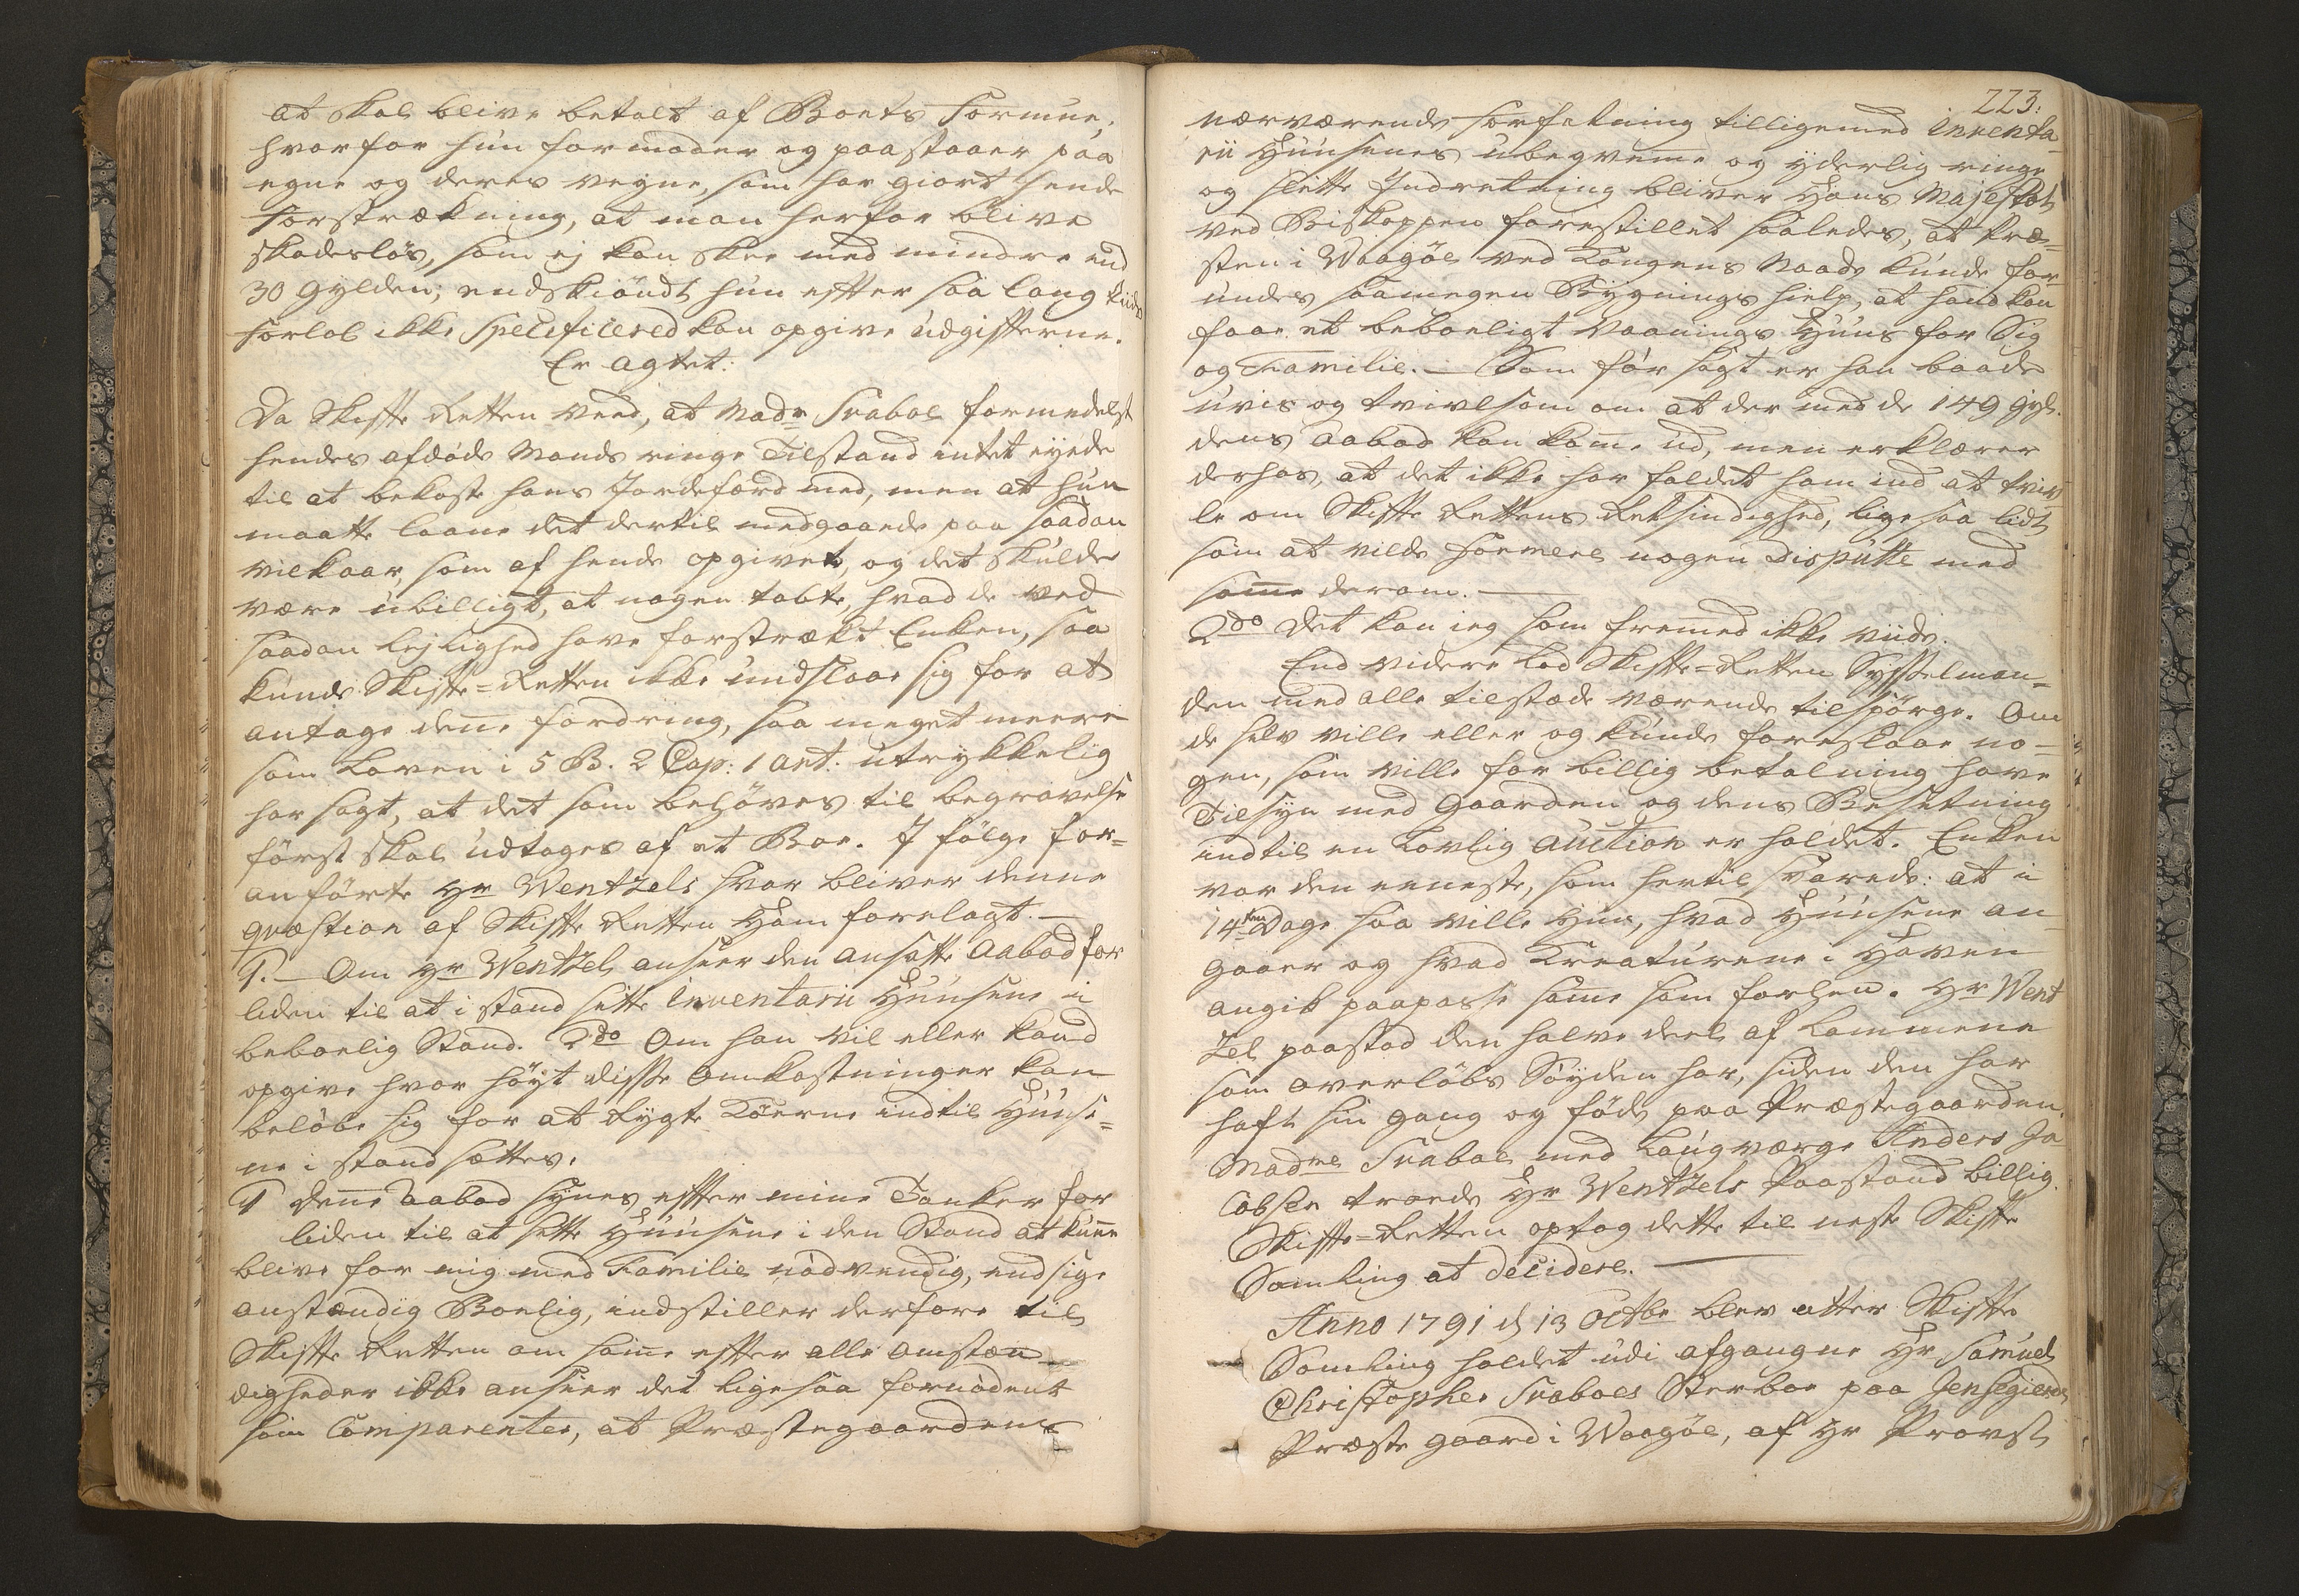 at skal blive betalt af Boets Formue,
hvorfor hun formoder og paastaaer paa
egne og deres vegne, som har giort hende
Forstrækning, at man herfor blive
skadesløs, som ej kan skee med mindre end
30 Gylden; endskiøndt hun efter saa lang tiids
forløb ikke Specificered kan opgive udgifterne.
Er agtet:
Da Skifte Retten veed, at Madm Svaboe formedelst
hendes afdøde Mands ringe Tilstand intet eyede
til at bekoste hans Jordefærd med, men at hun
maatte laane det dertil medgaaede paa saadan
vilkaar, som af hende opgivet, og det skulde
være ubilligt, at nogen tabte, hvad de ved
saadan Lejlighed have forstrækt Enken, saa
kunde Skifte-Retten ikke undslaae sig for at
antage denne fordring, saa meget meere
som Loven i 5 B. 2 Cap: 1 Art: utrykkelig
har sagt, at det som behøves til begravelse
først skal udtages af et Boe. I følge for-
anførte Hr Wentzels svar bliver denne
Qvæstion af Skifte Retten Ham forelagt.
1. Om Hr Wentzel anseer den ansatte Aabod for
liden til at i stand sette Inventarii Huusene i
beboelig Stand. 2do Om han vil eller kand
opgive hvor høyt disse Omkostninger kan
beløbe sig for at Røgte Køerne indtil Huuse-
ne i stand sættes.
1 Denne Aabod synes efter mine Tanker for
liden til at sette Huusene i den Stand at kunne
blive for mig med Familie nødvendig, endsige
anstændig Boelig, indstiller derfore til
Skifte Retten om samme efter alle Omstæn-
digheder ikke anseer det ligesaa fornødent
som Comparenten, at Præstegaardens
223:
nærværende forfatning tilligemed Inventa-
rii Huusenes ubeqvemme og yderlig ringe
og slette Indretning bliver Hans Majestæt
ved Biskoppen forestillet saaledes, at Præ-
sten i Waagøe ved Kongens Naade kunde for-
undes saamegen Bygnings hielp, at hand kan
faae et beboeligt Vaanings Huus for Sig
og Familie. — Som før sagt er han baade
uvis og tvivlsom om at der med de 149 Gyl-
dens Aabod kan komme ud, men erklærer
derhos, at det ikke har faldet ham ind at tviv-
le om Skifte Rettens Retsindighed, ligesaa lidt
som at vilde formere nogen Dispütte med
samme derom.
2do Det kan jeg som fremmed ikke viide.
End videre lod Skifte-Retten Sysselman-
den med alle tilstæde værende tilspørge. Om
de selv ville eller og kunde foreslaae no-
gen, som ville for billig betalning have
Tilsyn med Gaarden og dens Besetning
indtil en Lovlig Auction er holdet. Enken
var den eeneste, som hertil svarede: at i
14ten Dage saa ville hun, hvad Huusene an-
gaaer og hvad Kreaturene i Haven
angik paapasse samme som forhen. Hr Went
zel paastod den halve deel af Lammene
som overløbs Søyden har, siden den har
haft sin gang og føde paa Præstegaarden.
Madme Svaboe med Laugværge Anders Ja-
cobsen troede Hr Wentzels Paastand billig.
Skifte-Retten optog dette til neste Skifte
Samling at decidere.
Anno 1791 d 13 Octbr blev atter Skifte
Samling holdet udi afgangne Hr Samuel
Christopher Svaboes Sterboe paa Jensegierds
Præste gaard i Waagøe, af Hr Provst